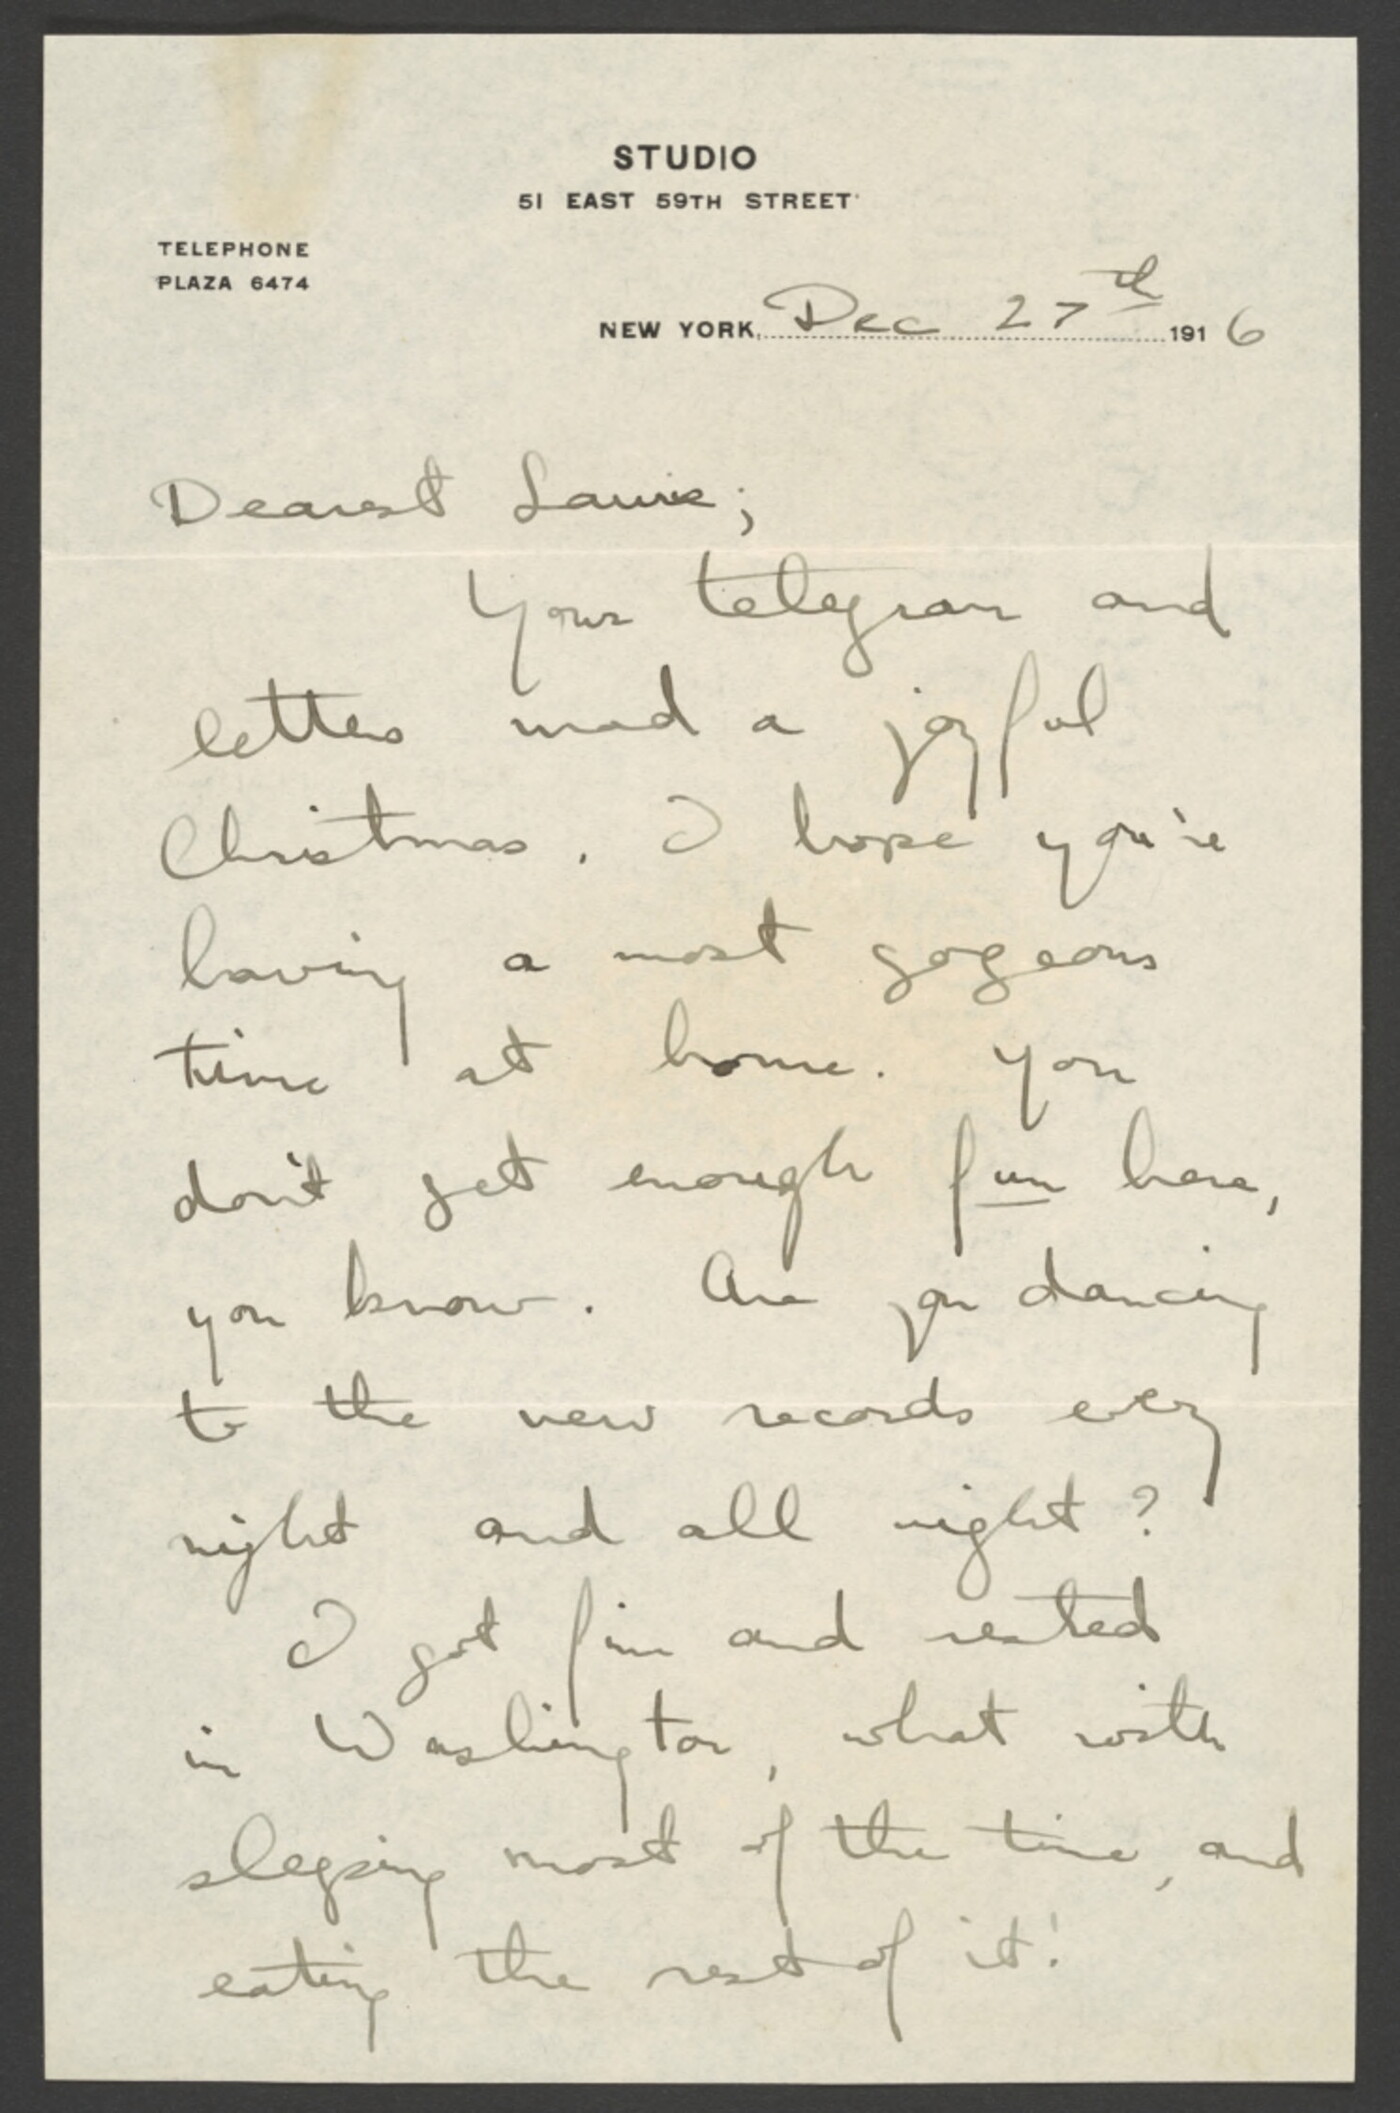 STUDIO
51 EAST 59TH STREET
TELEPHONE
PLAZA 6474
NEW YORK, Dec 27th 1916
Dearest Laurie;
Your telegram and
letters mad a joyful
Christmas. I hope you're
having a most gogeous
time at home. You
don't get enough fun here,
you know. Are you dancing
to the new records every
night and all night?
I got fine and rested
in Washington, what with
sleeping most of the time, and
eating the rest of it!